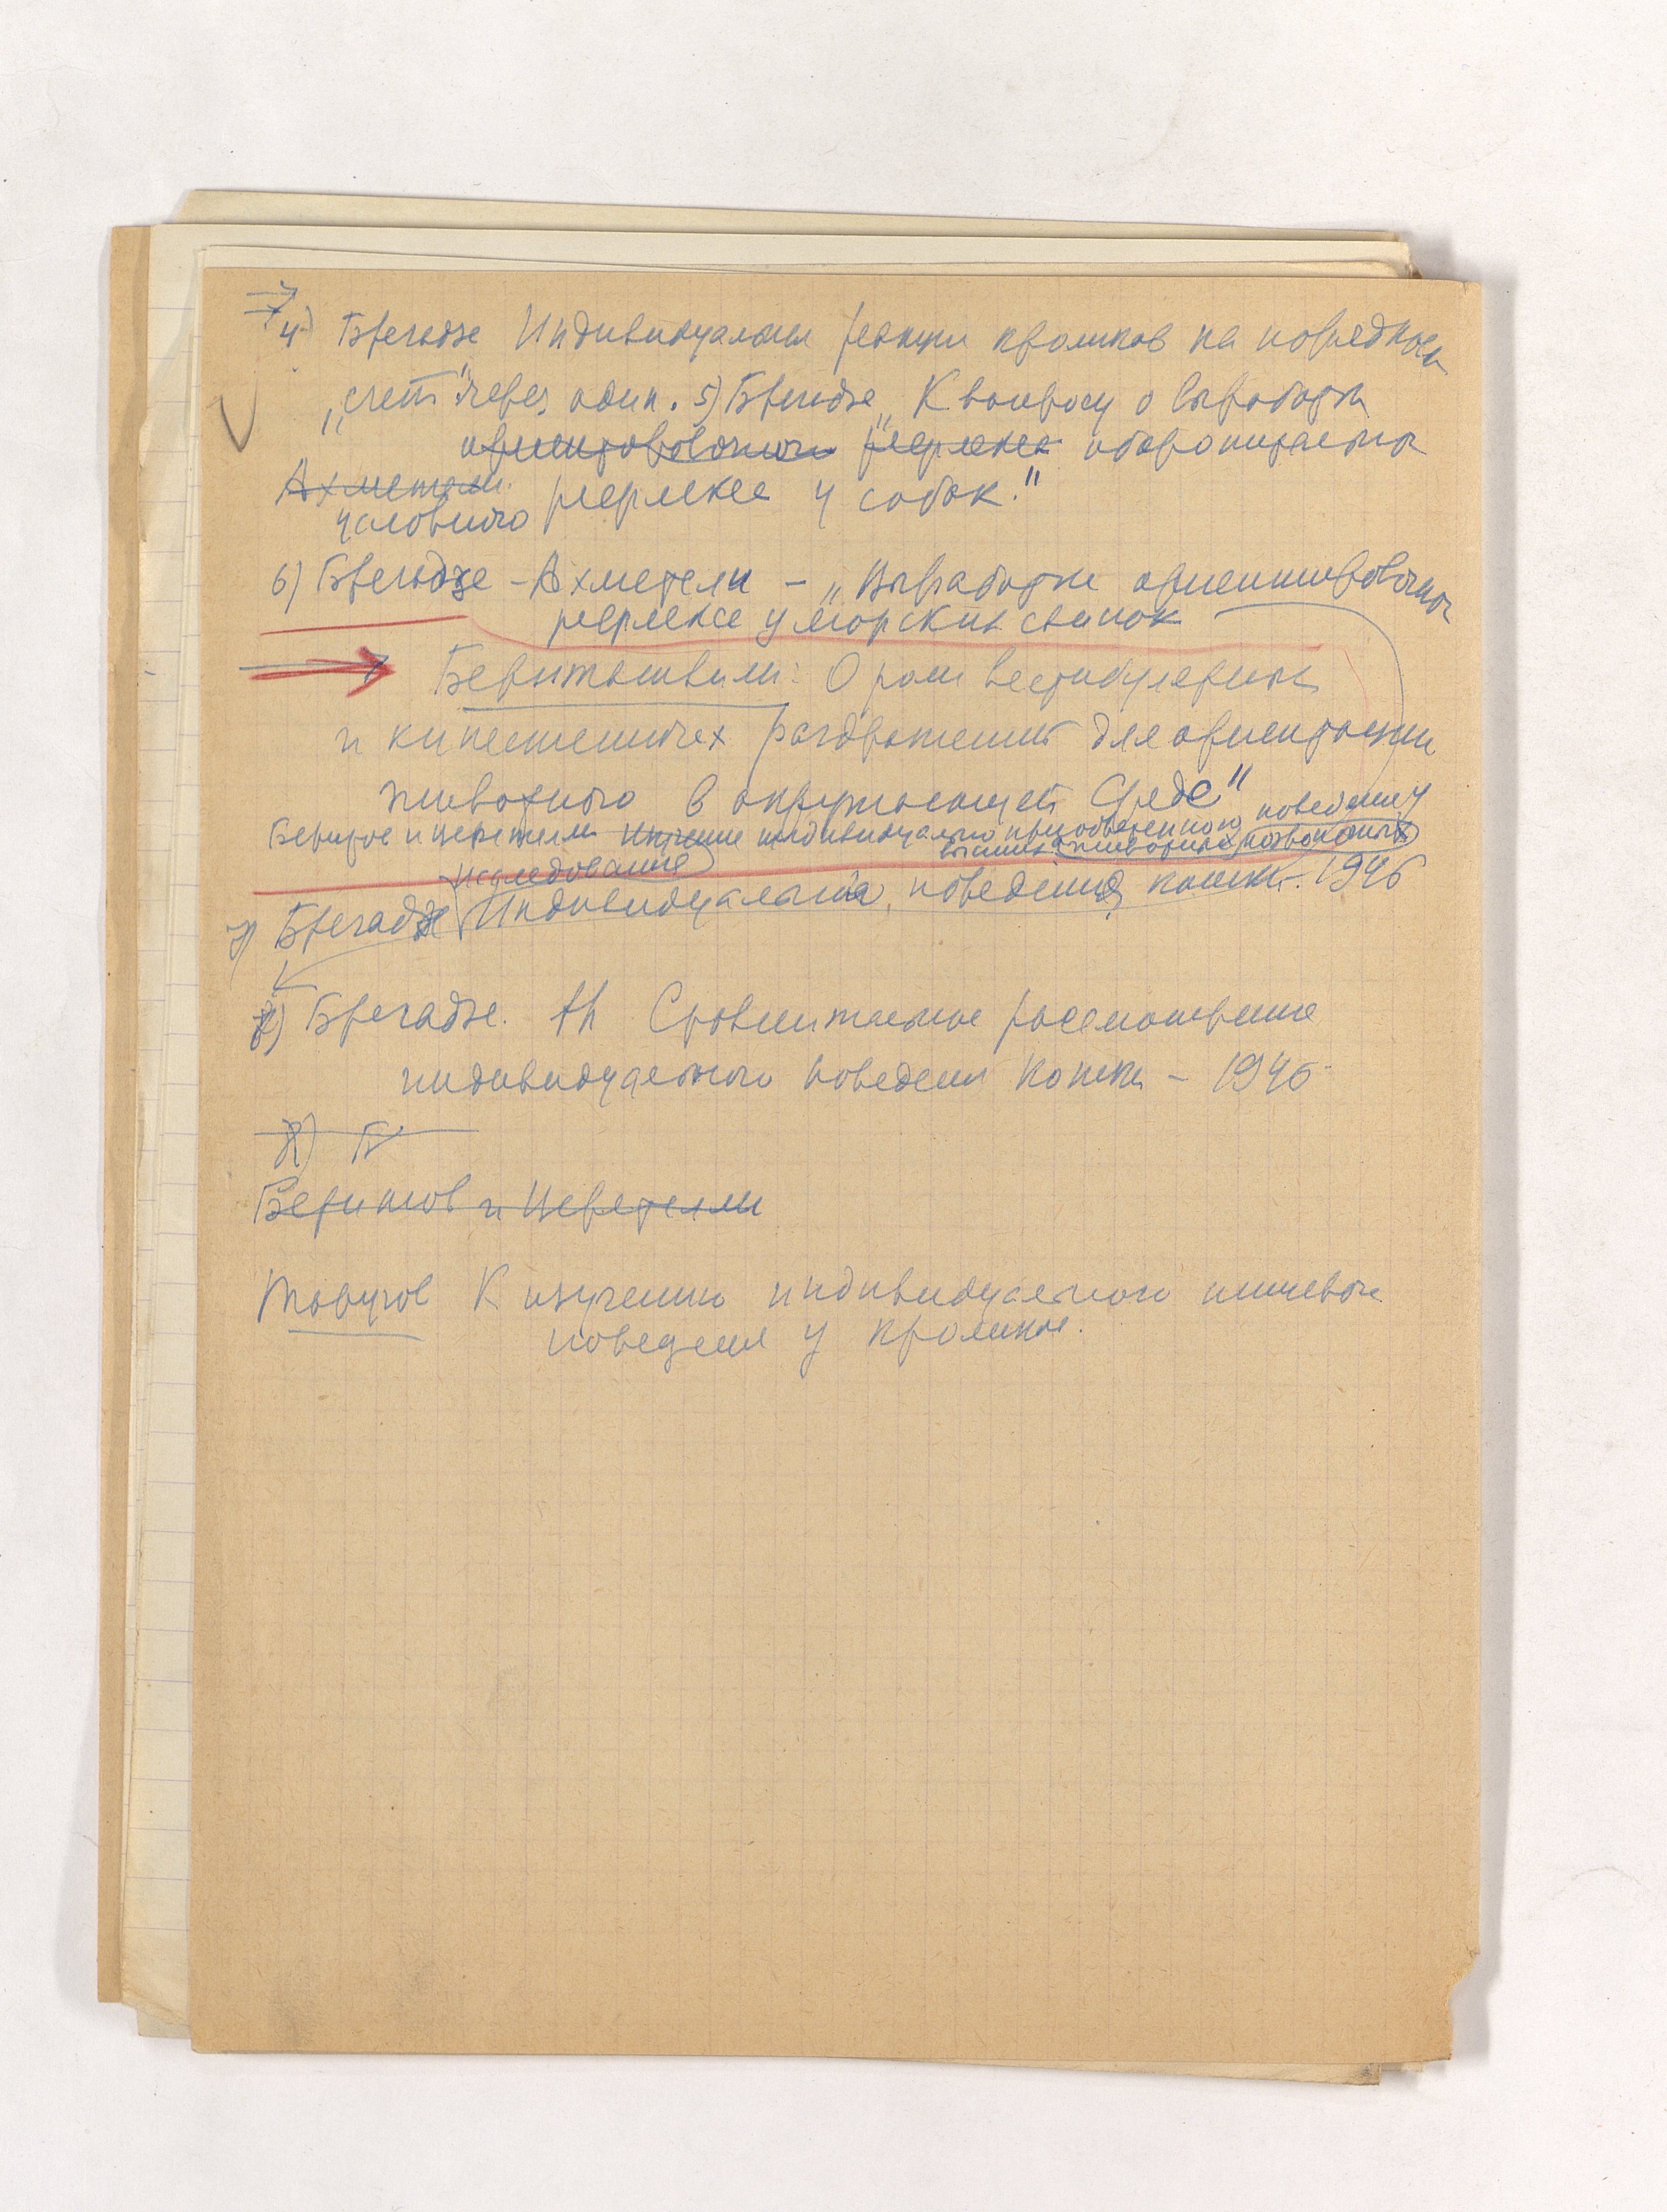 4) Брегадзе Индивидуальн реакции кроликов на порядков
„счет" через один. 5) Брегадзе „К вопросу о выработки
ориентировочного рефлекса оборонительного
Ахметели. рефлекса у собак."
условного
6) Брегадзе - Ахметели - „Выработки ориентировочного
рефлекса у морских свинок
Бериташвили: О роли вестибулярных
и кинестетичех раздражений для ориентации
животного в окружающей среде"
Беритов и Церетели Изучение индивидуально приобретенного поведения у
высших животных позвоночных
исследование
7) Брегадзе Индивидуального поведения кошки. 1946
8) Брегадзе. Ан Сравнительное рассмотрение
индивидуального поведения кошки - 1946
8) Б
Беритов и Церетели
К изучению индивидуального пищевого
поведения у кролика.